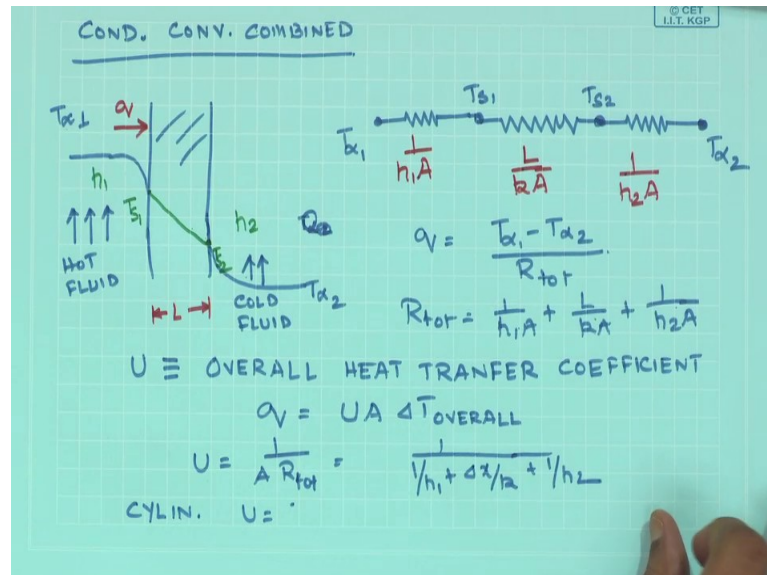 © CET
I.I.T. KGP
COND. CONV. COMBINED
Tα1 q
h1
TS1
HOT
FLUID
L
h2
TS2
COLD
FLUID
Tα2
Tα1 TS1 TS2 Tα2
1/h1A L/kA 1/h2A
q = Tα1 - Tα2 / Rtot
Rtot = 1/h1A + L/kA + 1/h2A
U ≡ OVERALL HEAT TRANFER COEFFICIENT
q = UA ΔTOVERALL
U = 1/A Rtot = 1/1/h1 + Δx/k + 1/h2
CYLIN. U =